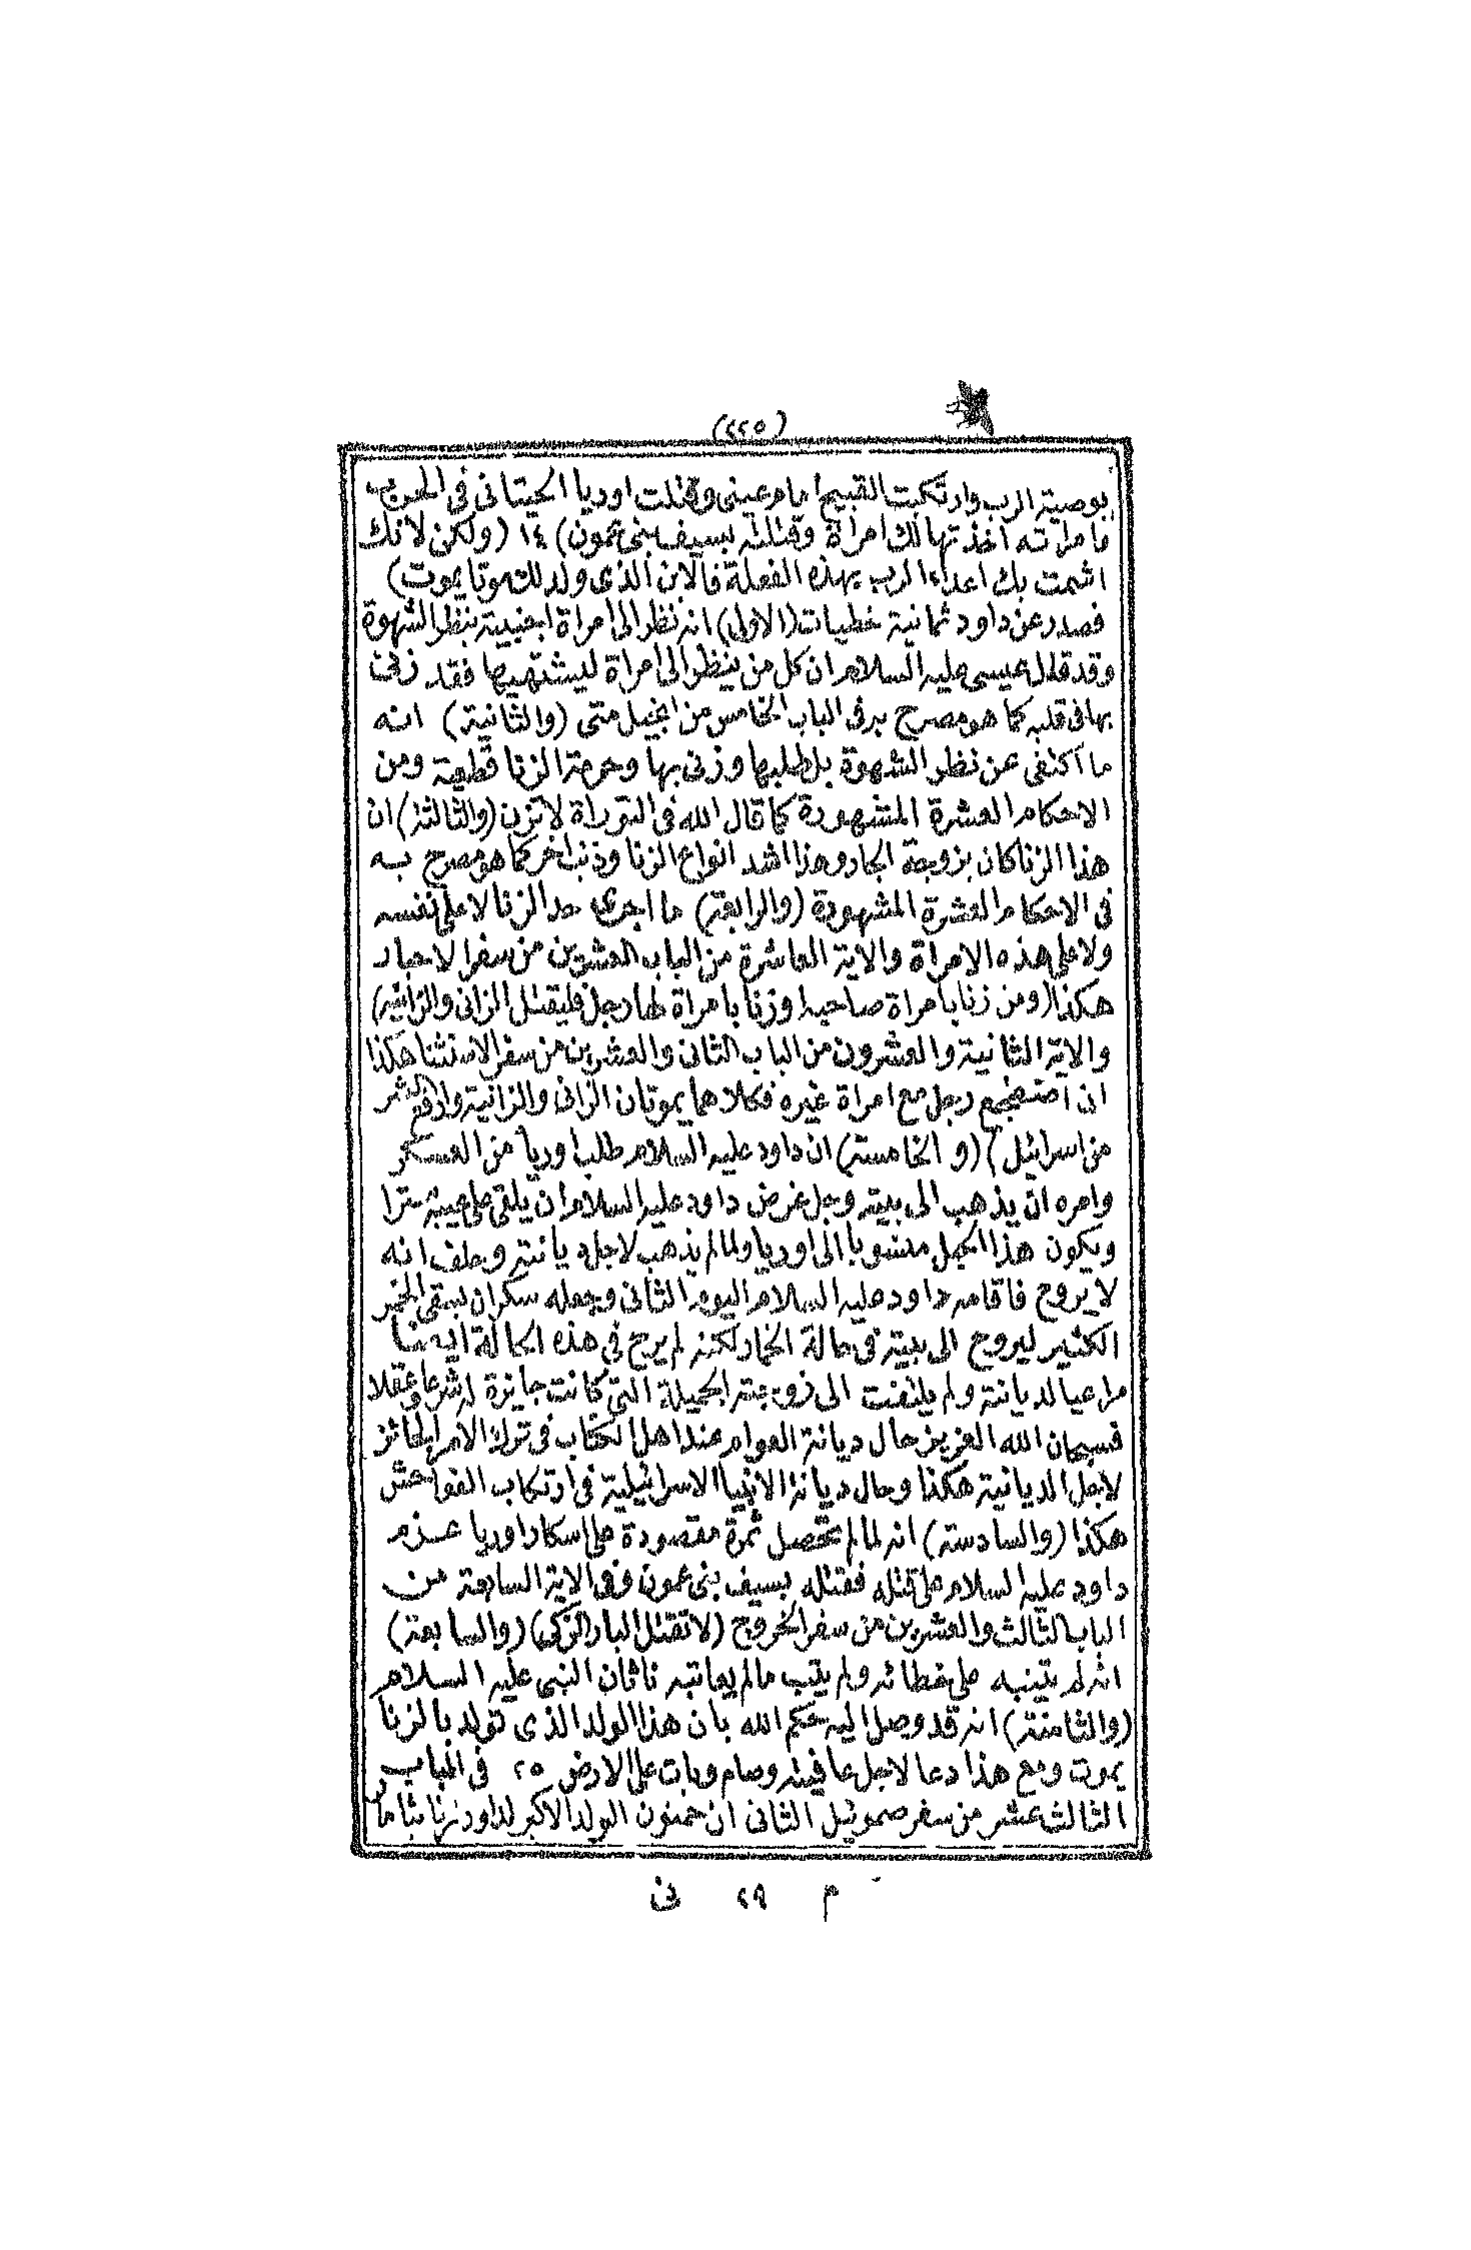 (٢٢٥)
بوصية الرب وارتكبت القبيح امام عينى وقتلت اوريا الحيتانى فى الحرب
وامراته اخذتها لك امراة وقتلته بسيف بنى عمون) ١٤ (ولكن لانك
اشمت بك اعداء الرب بهذه الفعلة فالابن الذى ولد لك موتا يموت)
فصدر عن داود ثمانية خطيات (الاولى) انه نظر الى امراة اجنبية بنظر الشهوة
وقد قال عيسى عليه السلام ان كل من ينظر الى امراة ليشتهيها فقد زنى
بها فى قلبه كما هو مصرح به فى الباب الخامس من انجيل متى (والثانية) انه
ما اكتفى عن نظر الشهوة بل طلبها وزنى بها وحرمة الزنا قطعية ومن
الاحكام العشرة المشهورة كما قال الله فى التوراة لا تزن (والثالثة) ان
هذا الزنا كان بزوجة الجار وهذا اشد انواع الزنا وذنب اخر كما هو مصرح به
فى الاحكام العشرة المشهورة (والرابعة) ما اجرى حد الزنا لا على نفسه
ولا على هذه الامراة والاية العاشرة من الباب العشرين من سفر الاحبار
هكذا (ومن زنا بامراة صاحبه او زنا بامراة لها رجل فليقتل الزانى والزانية)
والاية الثانية والعشرون من الباب الثانى والعشرين من سفر الاستثنا هكذا
ان اضطجع رجل مع امراة غيره فكلاهما يموتان الزانى والزانية وارفع الشر
من اسرائيل) (والخامسة) ان داود عليه السلام طلب اوريا من العسكر
وامره ان يذهب الى بيته وجل غرض داود عليه السلام ان يلقى على عيبه سترا
ويكون هذا الحمل منسوبا الى اوريا ولما لم يذهب لاجل ديانته وحلف انه
لا يروح فاقامه داود عليه السلام اليوم الثانى وجعله سكران بسقى الخمر
الكثير ليروح الى بيته فى حالة الخمار لكنه لم يرح فى هذه الحالة ايضا
مراعيا لديانته ولم يلتفت الى زوجته الجميلة التى كانت جايزة له شرعا وعقلا
فسبحان الله العزيز حال ديانة العوام عند اهل الكتاب فى ترك الامر الجائز
لاجل الديانية هكذا وحال ديانة الانبيا الاسرائيلية فى ارتكاب الفواحش
هكذا (والسادسة) انه لما لم تحصل ثمرة مقصودة على اسكار اوريا عزم
داود عليه السلام على قتله فقتله بسيف بنى عمون وفى الاية السابعة من
الباب الثالث والعشرين من سفر الخروج (لا تقتل البار الزكى) (والسابعة)
انه لم يتنبه على خطائه ولم يتب ما لم يعاتبه ناثان النبى عليه السلام
(والثامنة) انه قد وصل اليه حكم الله بان هذا الولد الذى تولد بالزنا
يموت ومع هذا دعا لاجل عافيته وصام وبات على الارض ٢٥ فى الباب
الثالث عشر من سفر صموئيل الثانى ان حمنون الولد الاكبر لداود زنا بثامار
م ٢٩ نى